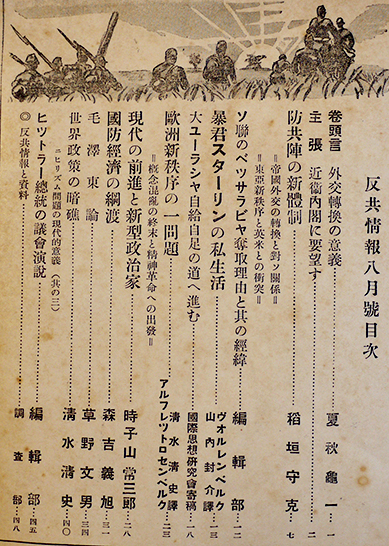 反共情報八月號目次
卷頭言 外交轉換の意義 夏秋龜一 一
主張 近衞內閣に要望す 二
防共陣の新體制 稻垣守克 七
＝帝國外交の轉換と對ソ關係＝
＝東亞新秩序と英米との衝突＝
ソ聯のベッサラビヤ奪取理由と其の經緯 編輯部 一二
暴君スターリンの私生活 ヴォルレンベルク 山內封介譯 一六
大ユーラシャ自給自足の道へ進む 國際思想硏究會寄稿 一八
歐洲新秩序の一問題 アルフレットロオセンベルク 淸水淸史譯 二三
＝槪念混亂の終末と精神革命への出發＝
現代の前進と新型政治家 時子山常三郎 二八
國防經濟の綱渡 森吉義旭 三一
毛澤東論 草野文男 三四
世界政策の暗礁 淸水淸史 四〇
ニヒリズム問題の現代的意義（其の二）
ヒットラー總統の議會演說 編輯部 四五
◎反共情報と資料 調查部 四八